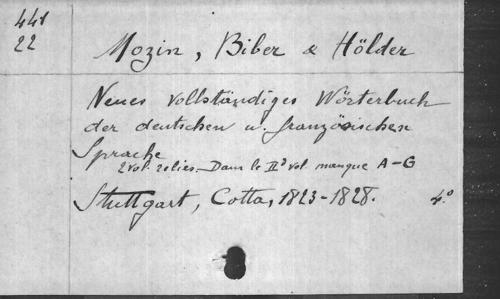 441
22
Mozin, Biber & Hölder
Neues vollständiges Wörterbuch
der deutschen u. französischen
Sprache
2 vol. reliés. Dans le IId vol. manque A-G
Stuttgart, Cotta, 1823-1828. 4.º